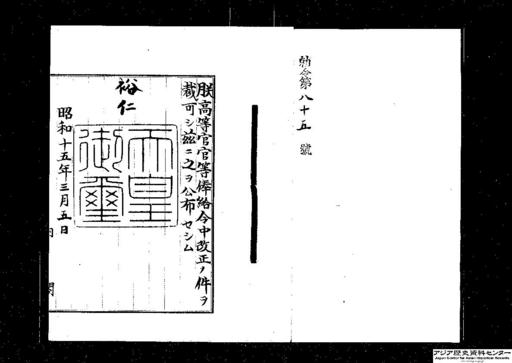 勅令第八十五號
朕高等官官等俸給令中改正ノ件ヲ
裁可シ茲ニ之ヲ公布セシム
裕仁
天皇御璽
昭和十五年三月五日
内 閣
アジア歴史資料センター
Japan Center for Asian Historical Records